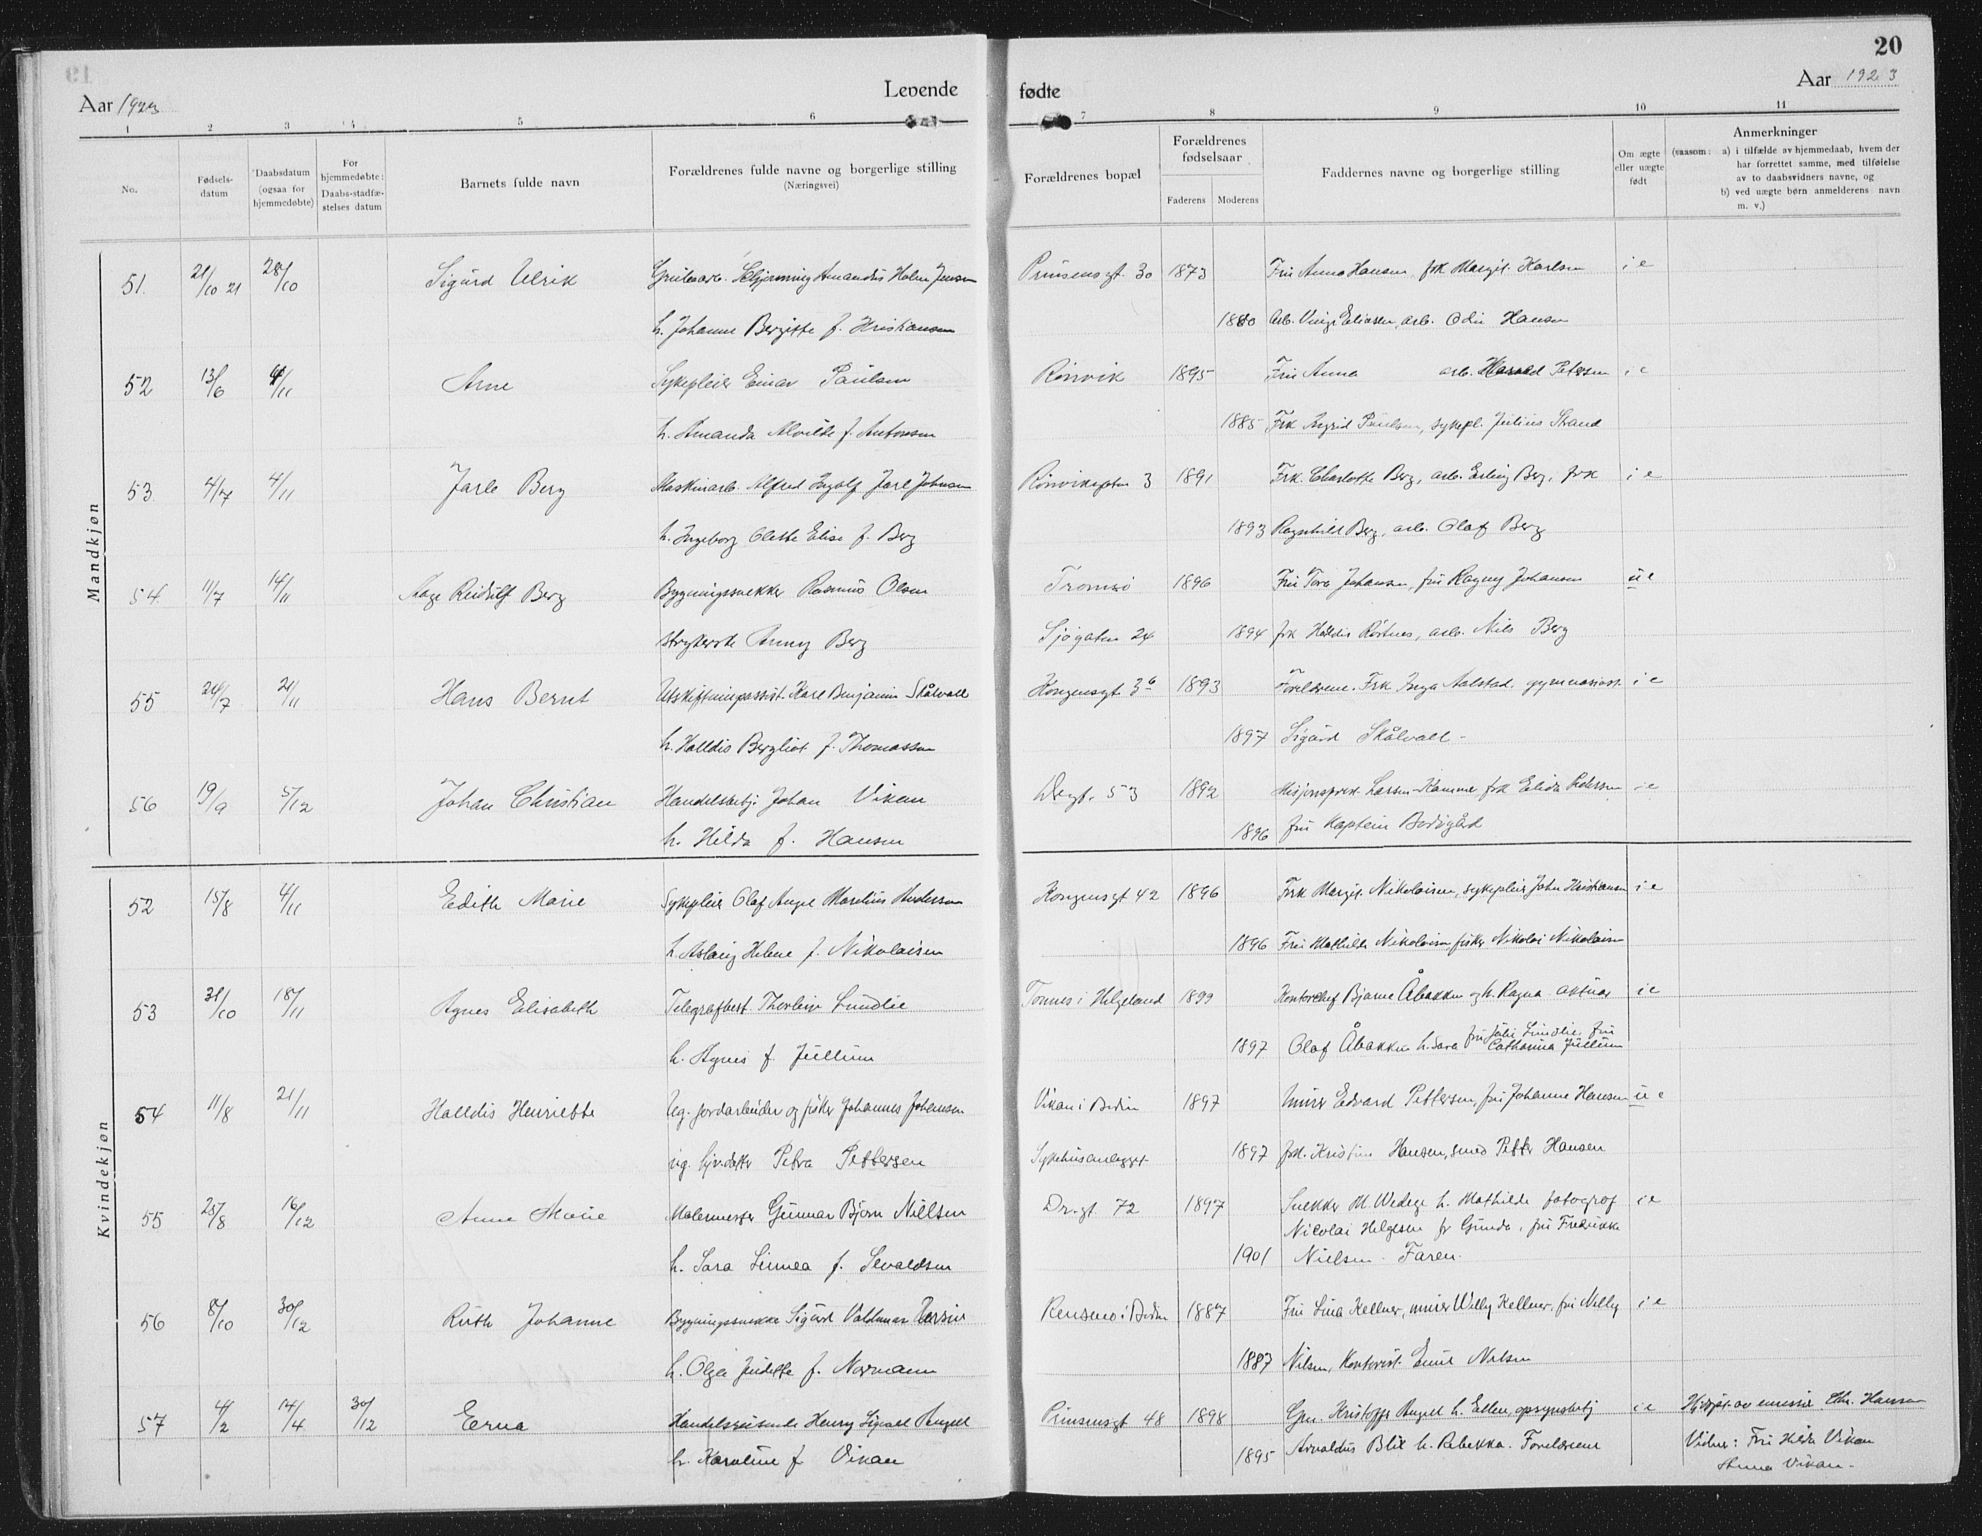 20
Aar 1923
Levende
fødte
Aar 1923
1 2 3 4 5 6 7 8 9 10 11
No.
Fødsels-
datum
Daabsdatum
(ogsaa for
hjemmedøbte)
For
hjemmedøbte:
Daabs-stadfæ-
stelses datum
Barnets fulde navn
Forældrenes fulde navne og borgerlige stilling
(Næringsvei)
Forældrenes bopæl
Forældrenes
fødselsaar
Faderens Moderens
Faddernes navne og borgerlige stilling
Om ægte
eller uægte
født
Anmerkninger
(saasom: a) i tilfælde av hjemmedaab, hvem der
har forrettet samme, med tilføielse
av to daabsvidners navne, og
b) ved uægte børn anmelderens navn
m. v.)
Mandkjøn
51. 21/10 21 28/10 Sigurd Ulrik Amandus Holm Jensen Prinsensgt. 30 1873 Fru Anna Hansen, frk Margit Karlsen i e
h. Johanne Bergitte f. Kristiansen 1880 arb. Eliasen, arb. Odin Hansen
52 13/6 4/11 Arne Sykepleier Einar Paulsen Rønvik 1895 Fru Anna arb. Harald Petersen i e
h. Amanda Alvilde f. Antonsen 1885 Frk Ingrid Paulsen, sykepl. Julius Strand
53. 4/7 4/11 Jarle Berg Maskinarb. Alfred Ingolf Jarl Johnsen Rønviksgten 3 1891 Frk. Charlotte Berg, arb. Erling Berg, frk i e
h. Ingeborg Olette Elise f. Berg 1893 Ragnhild Berg, arb. Olaf Berg
54. 11/7 14/11 Aage Reidulf Berg Bygningssnekker Rasmus Olsen Tromsø 1896 Fru Tora Johansen, fru Ragny Johansen u e
strykerske Anny Berg Sjøgaten 24 1894 frk Halldis Røstnes, arb. Nils Berg
55 24/7 21/11 Hans Bernt Utskiftningsassist. Karl Benjamin Skålvoll Kongensgt 36 1893 Foreldrene. Frk Inga Aalstad, gymnasiast i e
h. Halldis Bergliot f. Thomassen 1897 Sigurd Skålvoll -
56 19/9 5/12 Johan Christian Handelsbetj. Johan Vikan Drgt. 53 1892 Misjonsprest Larsen-Kamme frk Elida Pedersen i e
h. Hilda f. Hansen 1896 fru Kaptein Bodøgård
Kvindekjøn
52 15/8 4/11 Edith Marie Sykepleier Olaf Angel Marelius Andersen Kongensgt 42 1896 Frk Margit Nikolaisen, sykepleier John Kristiansen i e
h. Aslaug Helene f. Nikolaisen 1896 Fru Mathilde Nikolaisen fisker Nikolai Nikolaisen
53 31/10 18/11 Agnes Elisabeth Telegrafbest. Thorleiv Lundlie Tonnes i Helgeland 1899 Kontorchef Bjarne Åbakken og h. Ragna aktuar i e
h. Agnes f. Jullum 1897 Olaf Åbakken h. Sara fru Julie Lundlie, fru
Catharina Jullum
54 11/8 21/11 Halldis Henriette Ug. jordarbeider og fisker Johannes Johansen Vikan i Bodin 1897 Murer Edvard Pettersen, fru Johanne Hansen u e
ug. Petra Pettersen Sykehusanlegget 1897 frk. Kristine Hansen, smed Petter Hansen
55 25/8 16/12 Anne Marie Malermester Gunnar Bjørn Nielsen Dr.gt. 72 1897 Snekker M. Wedege h. Mathilde fotograf i e
Nicolai Helgesen fr Gunda, fru Fredrikke
h. Sara Linnea f. Sevaldsen 1901 Nielsen. Faren.
56 8/10 30/12 Ruth Johanne Bygningssnekker Sigurd Valdemar Rensmo i Bodin 1887 Fru Lina Kellner, murer Willy Kellner, fru Nelly i e
h. Olga Judette f. Normann 1887 Nilsen, Kontorist Emil Nilsen
57 4/2 14/4 30/12 Erna Handelsreisende Henry Sigvald Angell Prinsensgt 48 1898 Kristoffer Angell h. Ellen, opsynsbetj i e Hj.døpt av emissær Chr. Hansen
h. Karoline f Vikan 1895 Arnoldus Blix h. Rebekka. Foreldrene Vidner: Fru Hilda Vikan
Anna Vikan -